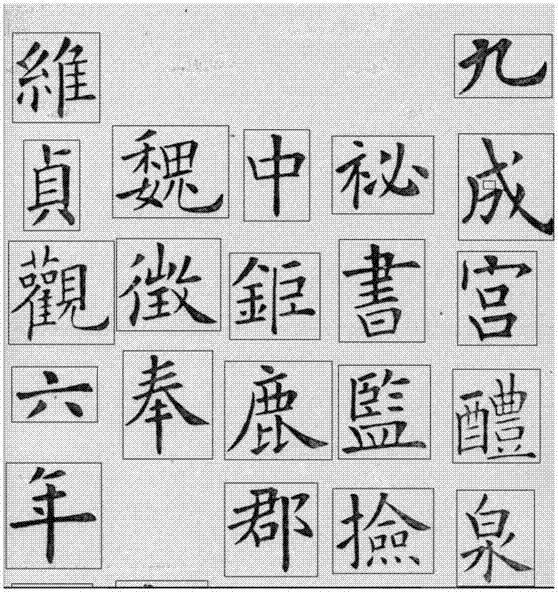 九成宫醴泉
祕書監撿
中鉅鹿郡
魏徵奉
維貞觀六年